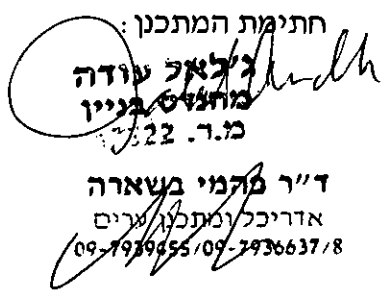 חתימת המתכנן :
ג'לאל עודה
מהנדס בניין
מ.ר.
ד"ר פהמי בשארה
אדריכל ומתכנן ערים
09-7939455/09-7936637/8